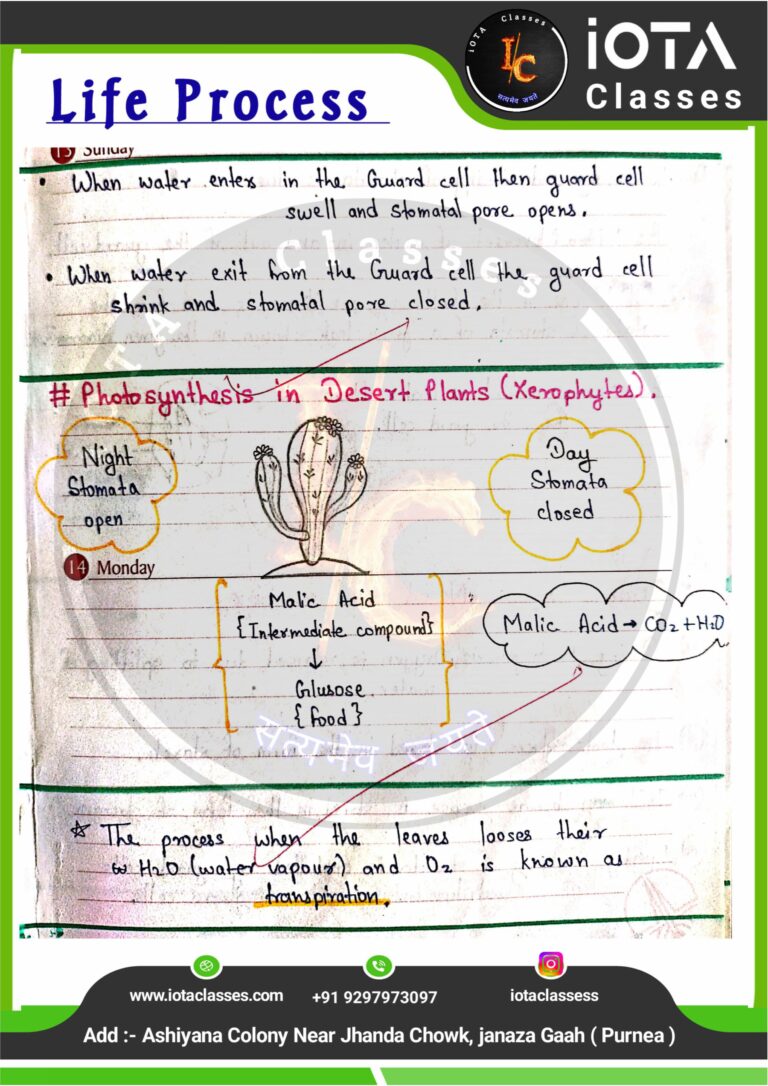 iOTA Classes
I/C
सत्यमेव जयते
iOTA
Classes
Life Process
13 Sunday
• When water enters in the Guard cell then guard cell
swell and stomatal pore opens.
• When water exit from the Guard cell the guard cell
shrink and stomatal pore closed.
# Photosynthesis in Desert Plants (Xerophytes).
Night
Stomata
open
Day
Stomata
closed
14 Monday
Malic Acid
{Intermediate compound}
↓
Glusose
{food}
Malic Acid → CO2 + H2O
सत्यमेव जयते
☆ The process when the leaves looses their
H2O (water vapour) and O2 is known as
transpiration.
www.iotaclasses.com
+91 9297973097
iotaclassess
Add :- Ashiyana Colony Near Jhanda Chowk, janaza Gaah ( Purnea )